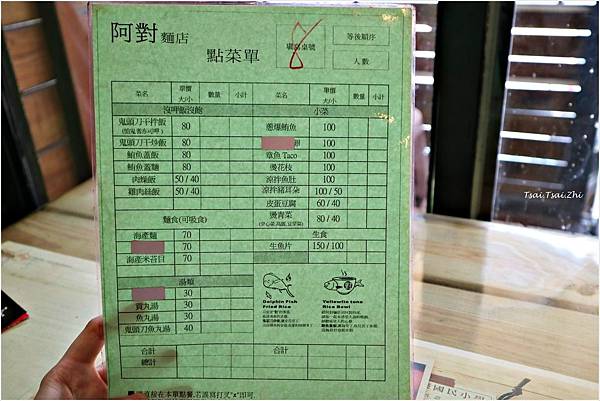 阿對 麵店
點菜單
等後順序
人數
菜名 單價 大/小 數量 小計 菜名 單價 大/小 數量 小計
沒呷飯沒飽 小菜
鬼頭刀干拌飯 80 蔥爆鮪魚 100
鬼頭刀干炒飯 80 100
鮪魚蓋飯 80 章魚 Taco 100
鮪魚蓋麵 80 燙花枝 100
肉燥飯 50 / 40 涼拌魚肚 100
雞肉絲飯 50 / 40 涼拌豬耳朵 100 / 50
皮蛋豆腐 60 / 40
麵食(可吸食) 燙青菜 80 / 40
海產麵 70 生食
70 生魚片 150 / 100
海產米苔目 70
湯類
30
貢丸湯 30
魚丸湯 30
鬼頭刀魚丸湯 40
Dolphin Fish Fried Rice
Yellowfin tuna Rice Bowl
合計 合計
總計
直接在本單點餐,若誤寫打叉"x"即可.
國民小學
Tsai.Tsai.Zhi